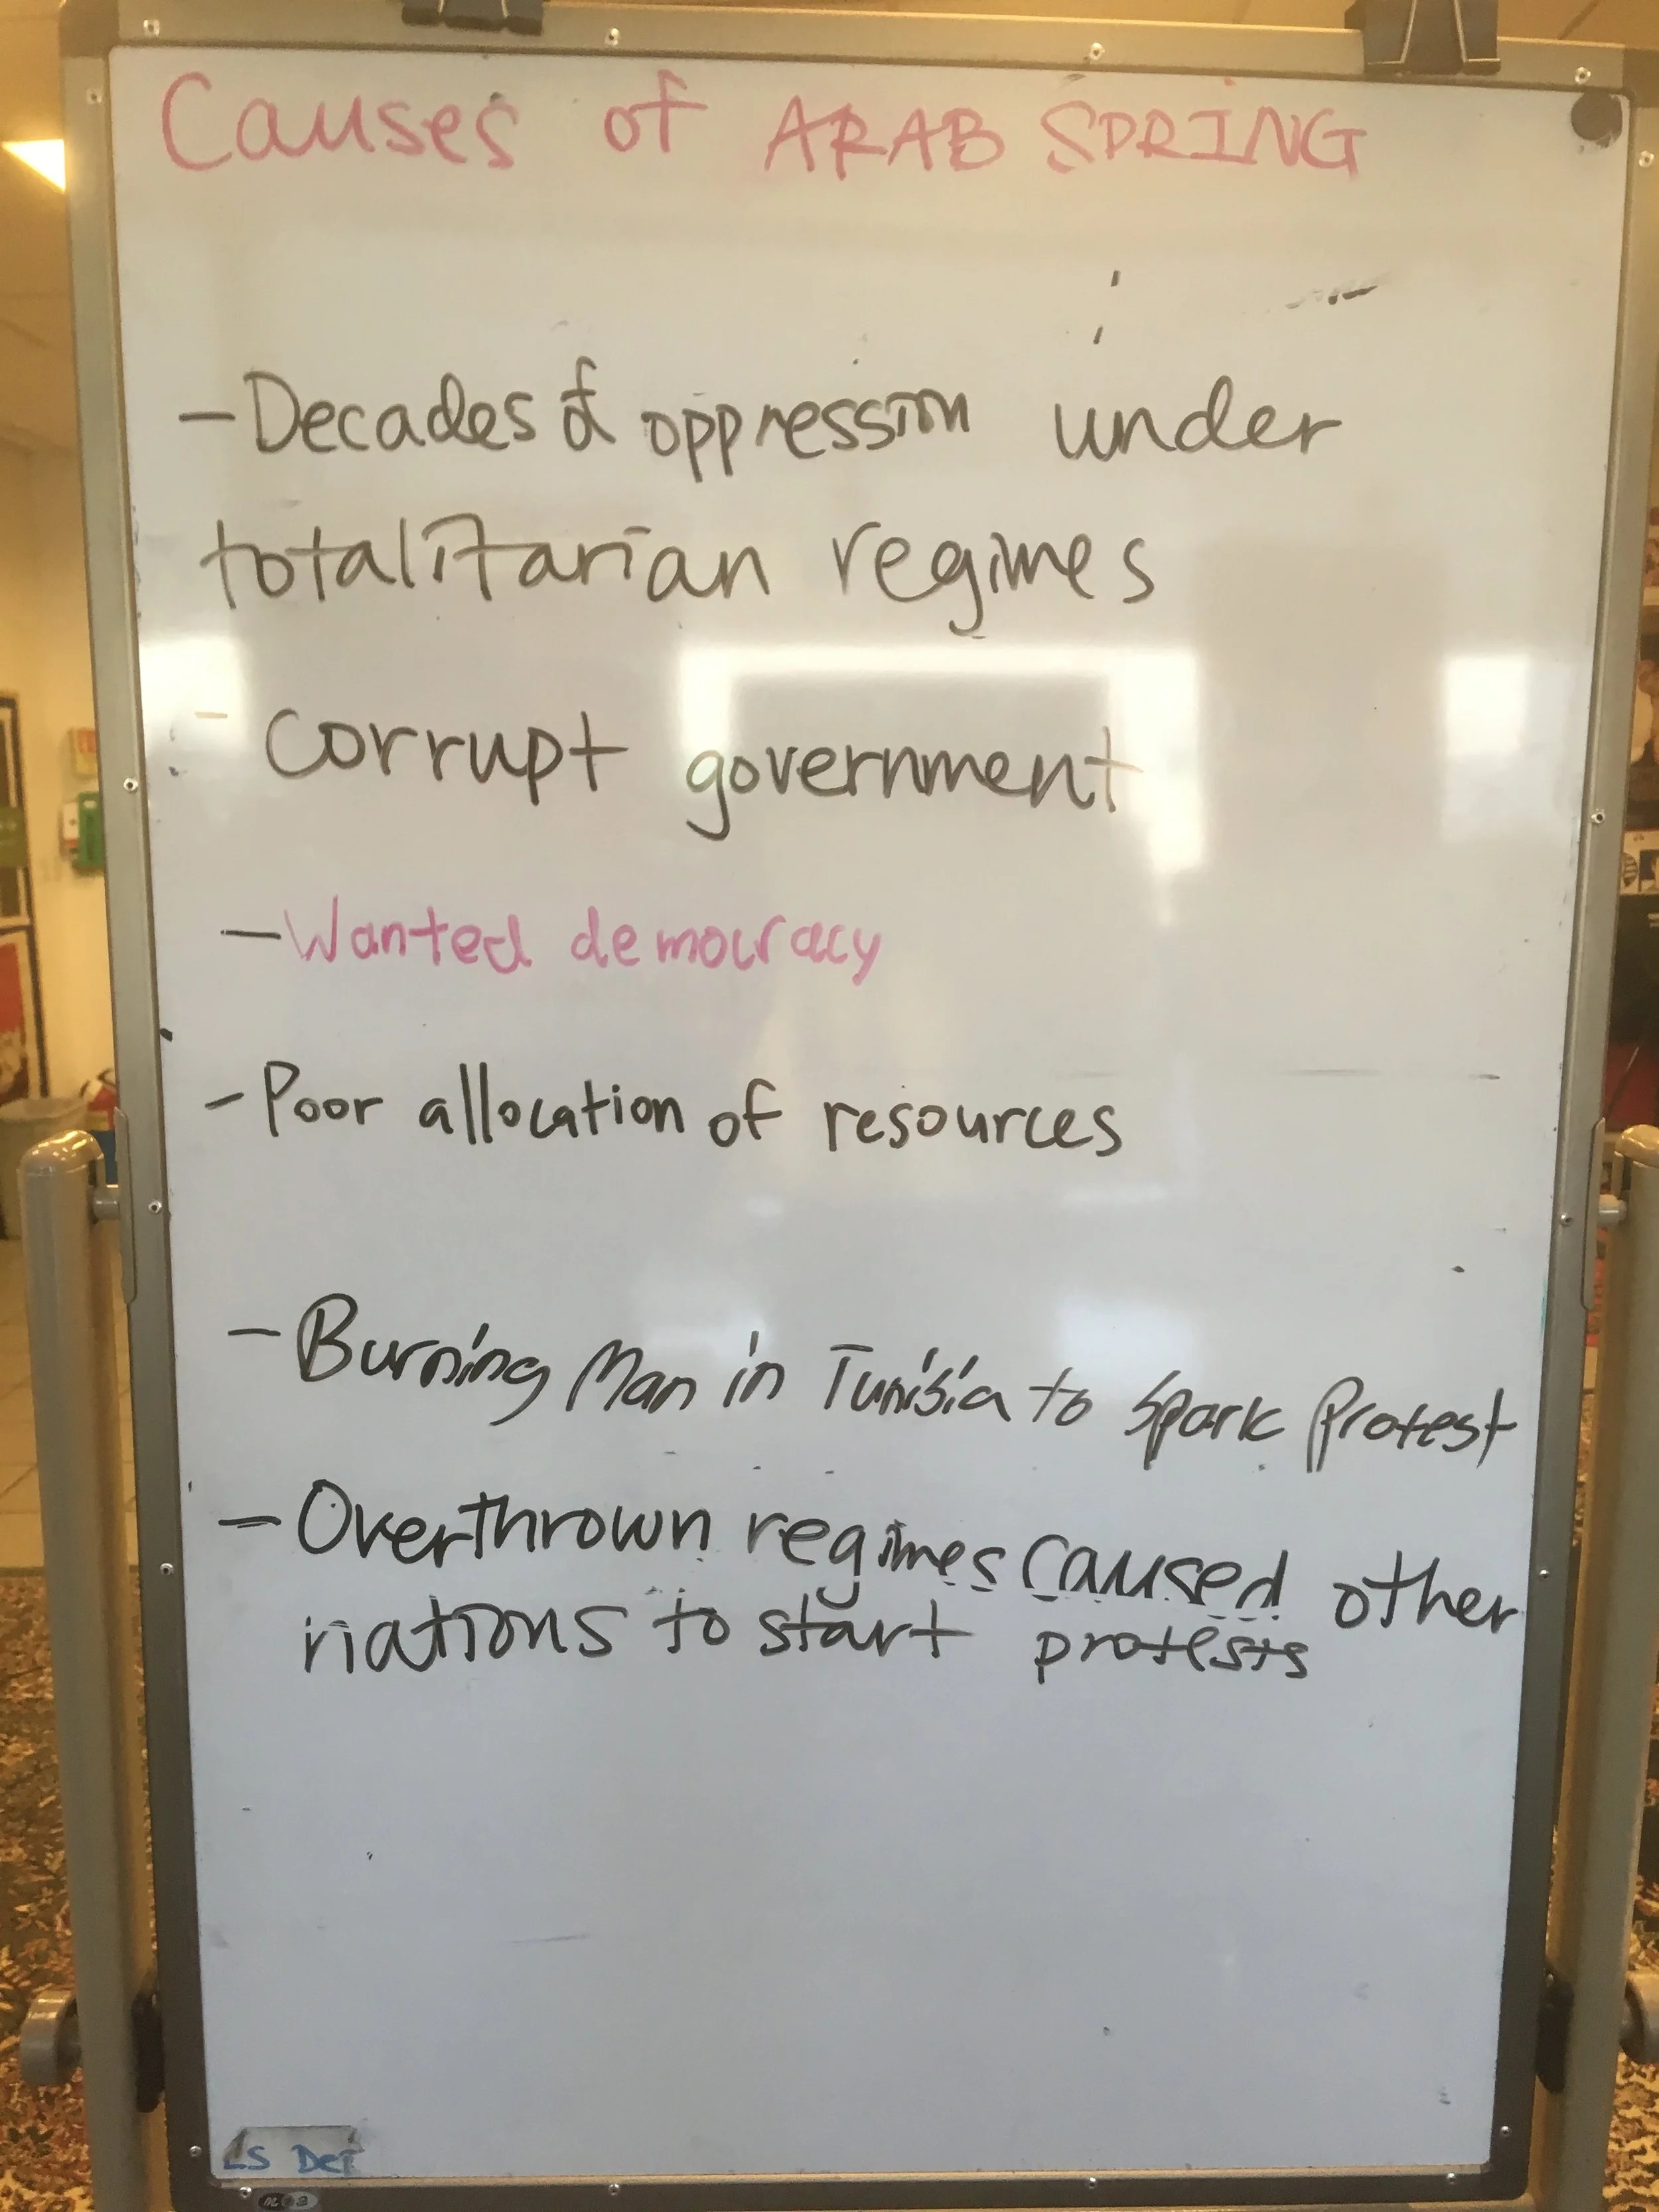 Causes of ARAB SPRING
- Decades of oppression under
totalitarian regimes
- corrupt government
- Wanted democracy
- Poor allocation of resources
- Burning Man in Tunisia to Spark Protest
- Overthrown regimes caused other
nations to start protests
LS